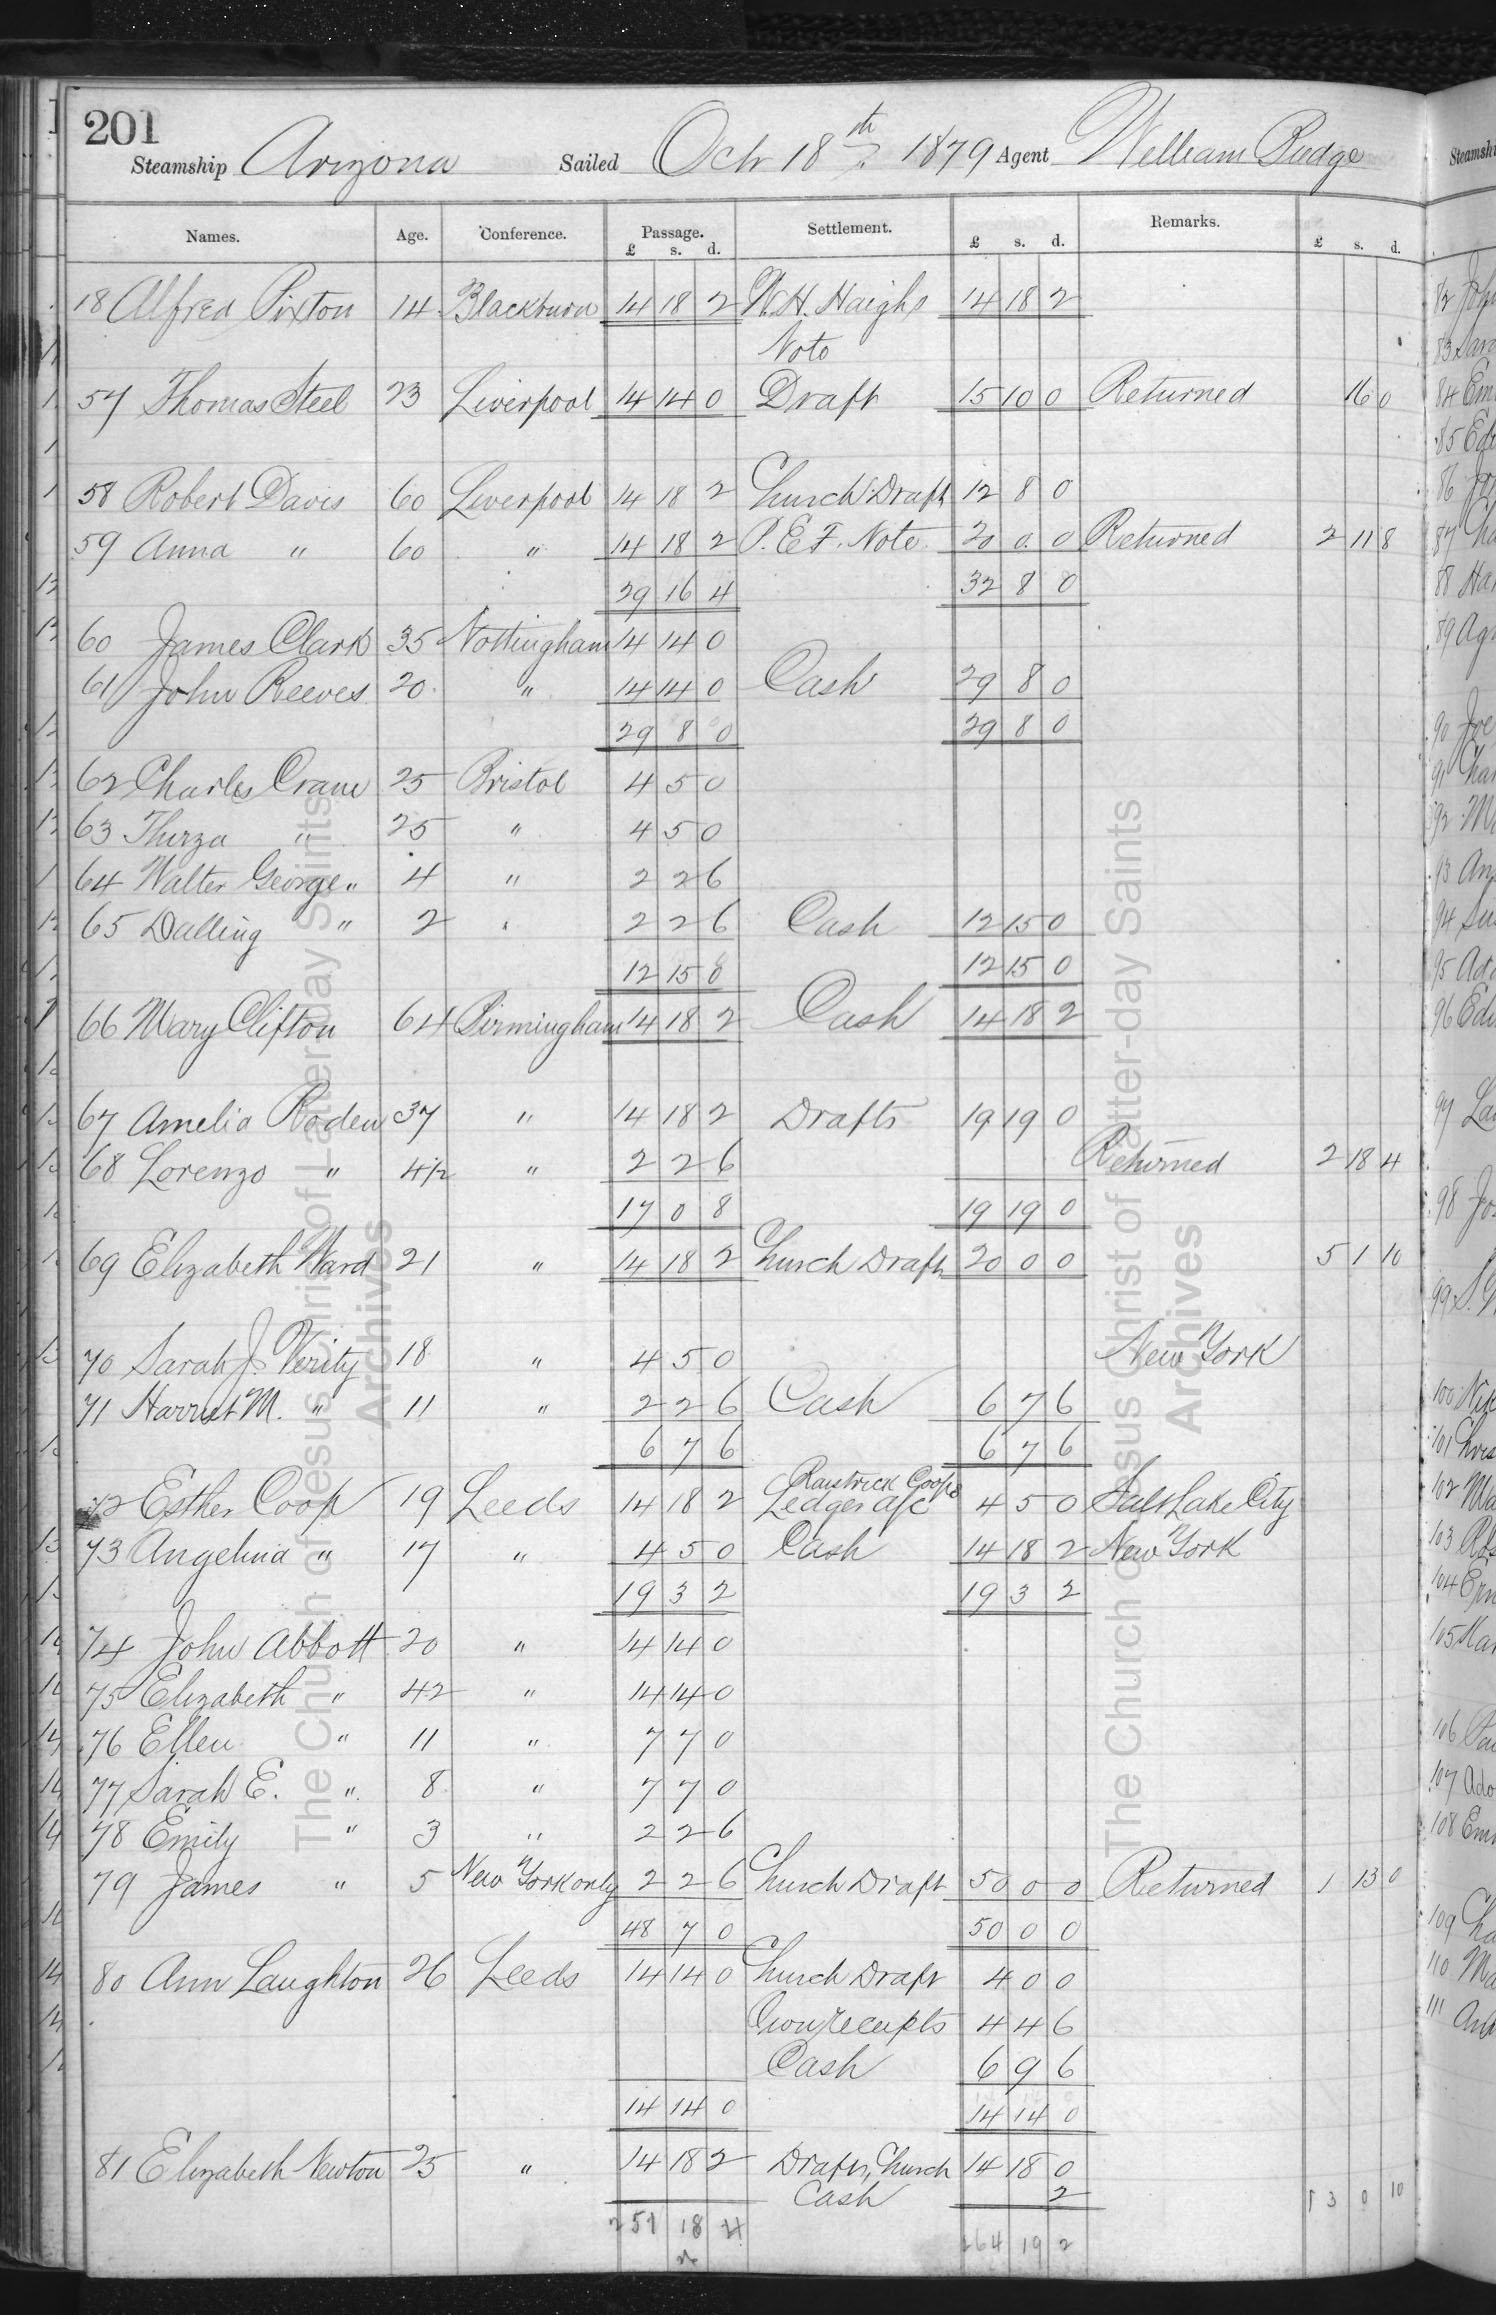 201
Steamship Arizona Sailed Octr 18th 1879 Agent William Budge
Names. Age. Conference. Passage. Settlement. Remarks.
£ s. d. £ s. d. £ s. d.
18 Alfred Pixton 14 Blackburn 14 18 2 W. H. Haighs 14 18 2
Note
57 Thomas Steel 23 Liverpool 14 14 0 Draft 15 10 0 Returned 16 0
58 Robert Davis 60 Liverpool 14 18 2 Church Draft 12 8 0
59 Anna " 60 " 14 18 2 P. E. F. Note 20 0 0 Returned 2 11 8
29 16 4 32 8 0
60 James Clark 35 Nottingham 14 14 0
61 John Reeves 20 " 14 14 0 Cash 29 8 0
29 8 0 29 8 0
62 Charles Crane 25 Bristol 4 5 0
63 Thirza " 25 " 4 5 0
64 Walter George " 4 " 2 2 6
65 Dalling " 2 " 2 2 6 Cash 12 15 0
12 15 0 12 15 0
66 Mary Clifton 64 Birmingham 14 18 2 Cash 14 18 2
67 Amelia Roden 37 " 14 18 2 Drafts 19 19 0
68 Lorenzo " 4½ " 2 2 6 Returned 2 18 4
17 0 8 19 19 0
69 Elizabeth Ward 21 " 14 18 2 Church Draft 20 0 0 5 1 10
70 Sarah J. Verity 18 " 4 5 0 New York
71 Harriet M. " 11 " 2 2 6 Cash 6 7 6
6 7 6 6 7 6
Rastrick Coop
72 Esther Coop 19 Leeds 14 18 2 Ledger a/c 4 5 0 Salt Lake City
73 Angelina " 17 " 4 5 0 Cash 14 18 2 New York
19 3 2 19 3 2
74 John Abbott 20 " 14 14 0
75 Elizabeth " 42 " 14 14 0
76 Ellen " 11 " 7 7 0
77 Sarah E. " 8 " 7 7 0
78 Emily " 3 " 2 2 6
79 James " 5 New York only 2 2 6 Church Draft 50 0 0 Returned 1 13 0
48 7 0 50 0 0
80 Ann Laughton 26 Leeds 14 14 0 Church Draft 4 0 0
Own receipts 4 4 6
Cash 6 9 6
14 14 0 14 14 0
81 Elizabeth Newton 25 " 14 18 2 Draft, Church 14 18 0
Cash 2
13 0 10
251 18 264 19 2
The Church of Jesus Christ of Latter-day Saints
Archives
The Church of Jesus Christ of Latter-day Saints
Archives